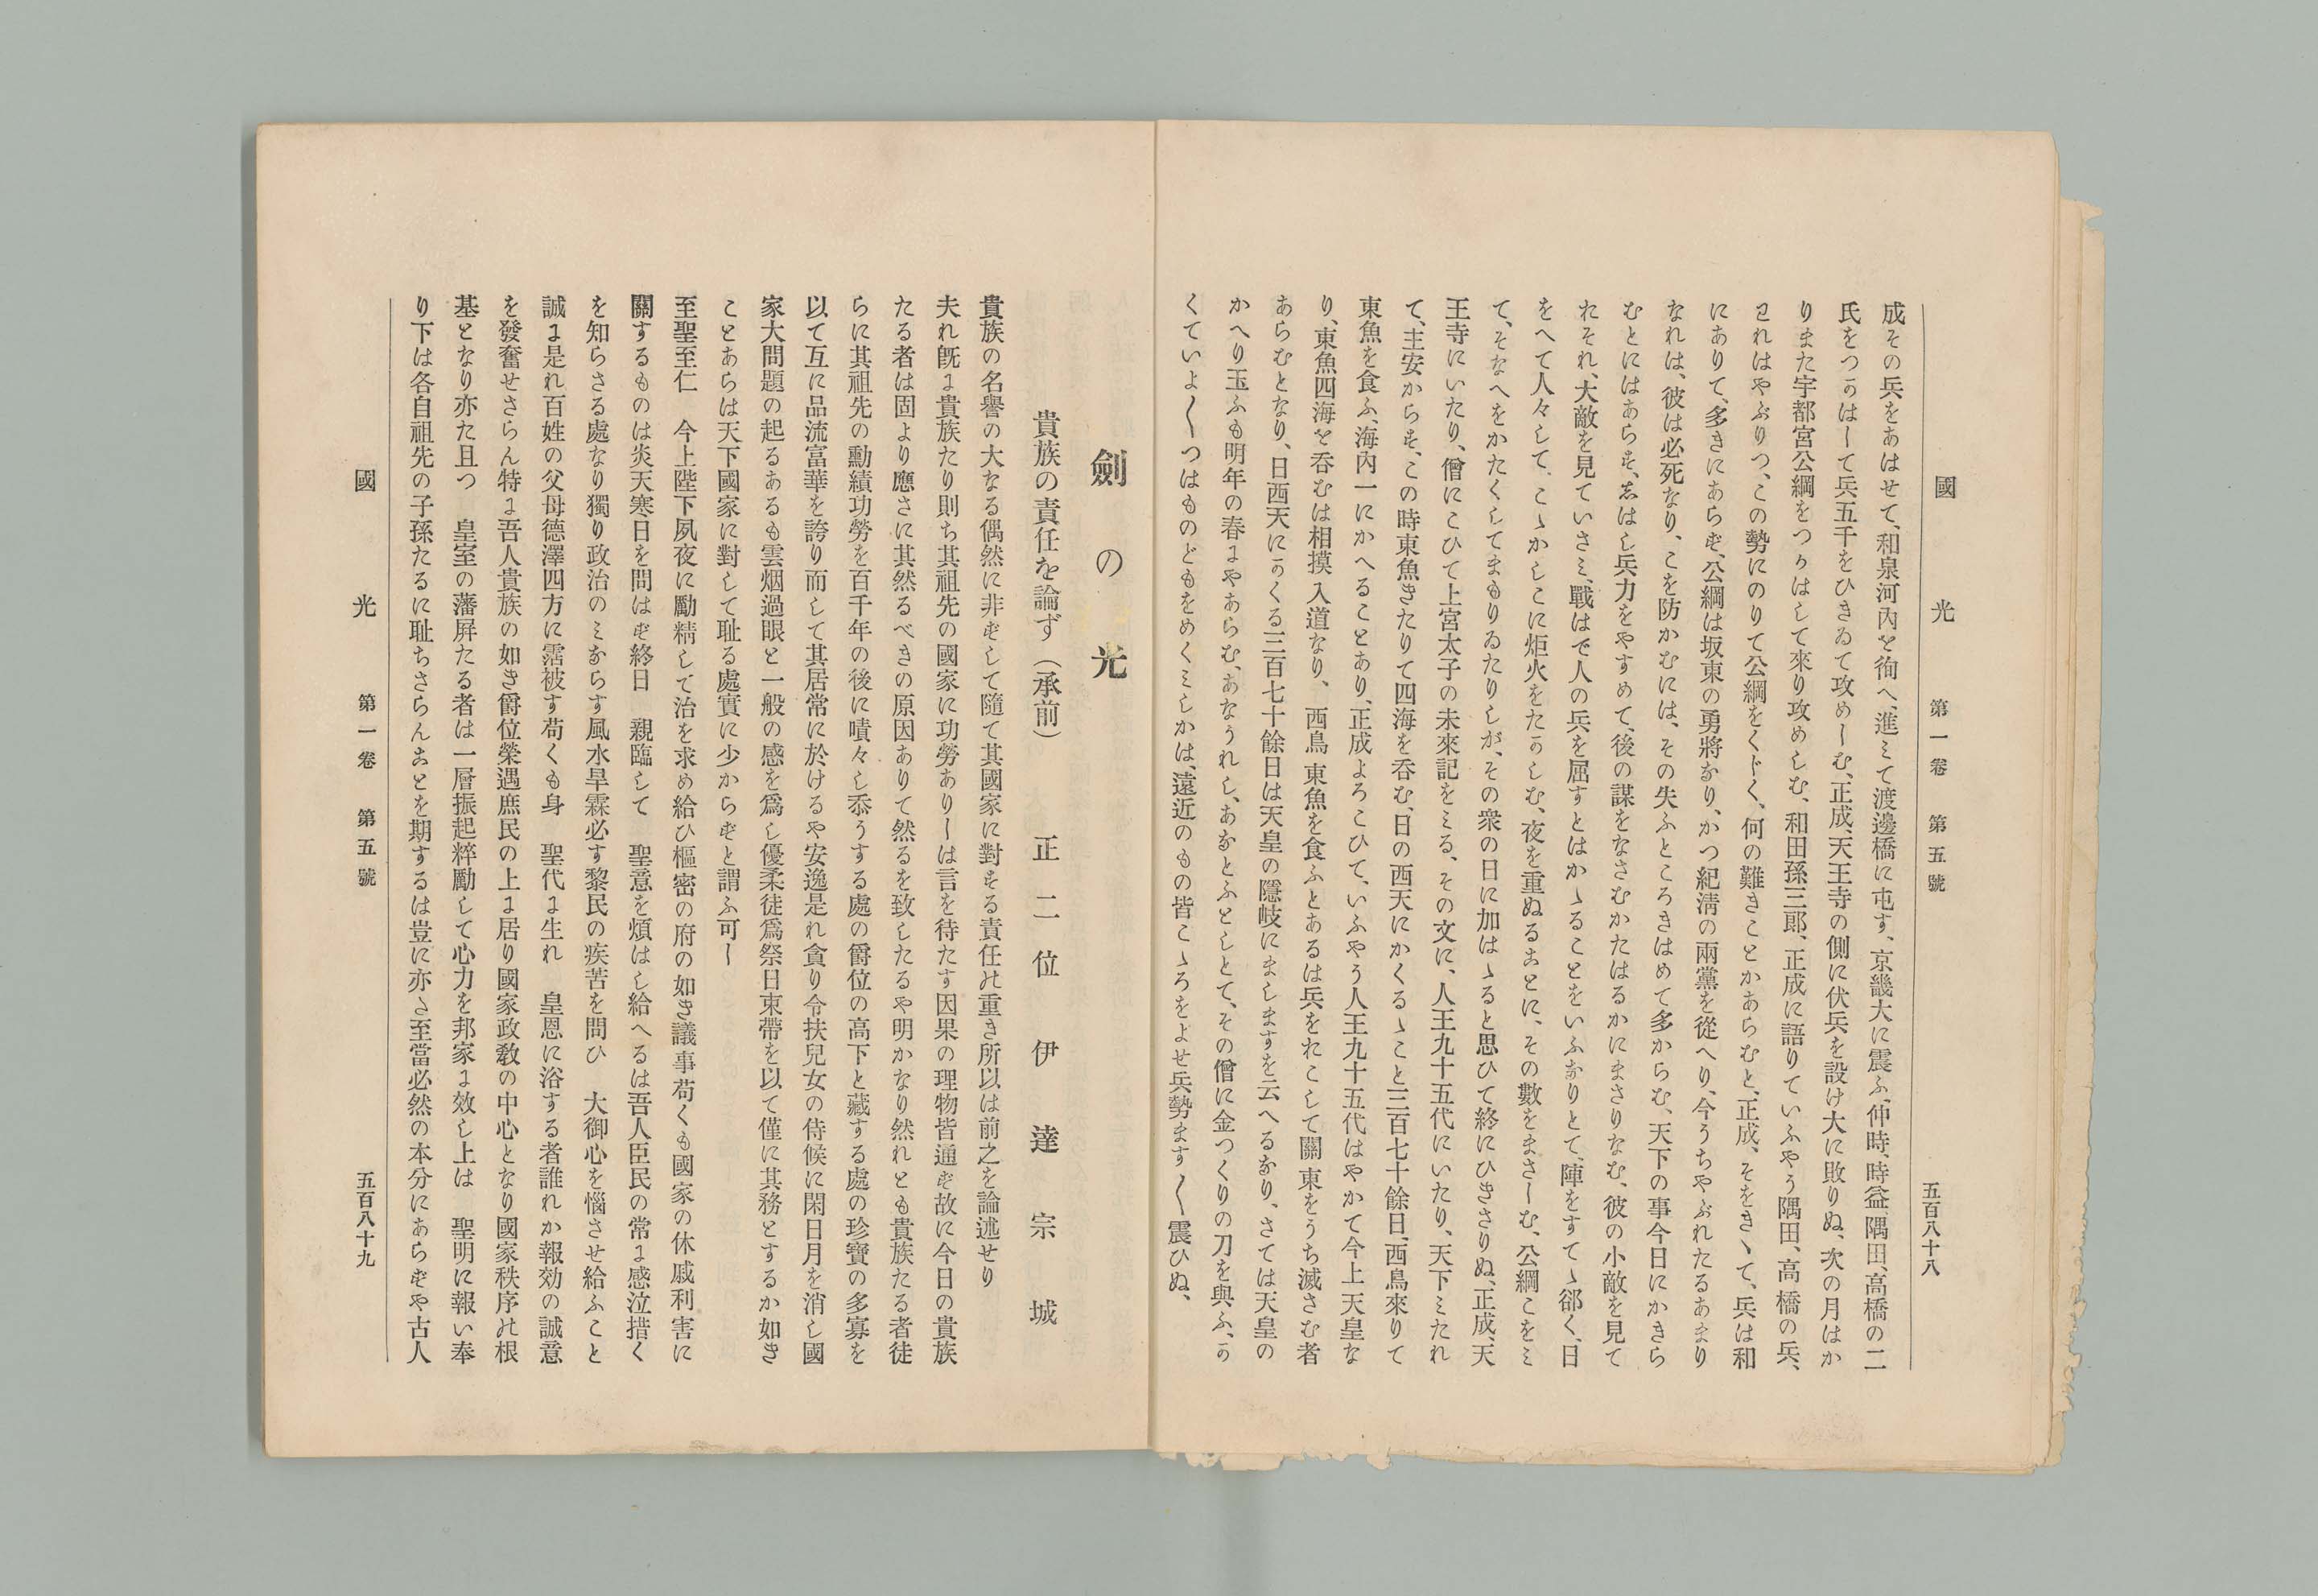 國光 第一卷 第五號 五百八十八
成その兵をあはせて、和泉河內を徇へ、進みて渡邊橋に屯す、京畿大に震ふ、仲時、時益、隅田、高橋の二
氏をつかはして兵五千をひきゐて攻めしむ、正成、天王寺の側に伏兵を設け大に敗りぬ、次の月はか
りまた宇都宮公綱をつかはして來り攻めしむ、和田孫三郎、正成に語りていふやう隅田、高橋の兵、
われはやぶりつ、この勢にのりて公綱をくじく、何の難きことかあらむと、正成、そをきゝて、兵は和
にありて、多きにあらず、公綱は坂東の勇將なり、かつ紀淸の兩黨を從へり、今うちやぶれたるあまり
なれは、彼は必死なり、こを防かむには、その失ふところきはめて多からむ、天下の事今日にかきら
むとにはあらす、志はし兵力をやすめて、後の謀をなさむかたはるかにまさりなむ、彼の小敵を見て
おそれ、大敵を見ていさみ、戰はで人の兵を屈すとはかゝることをいふなりとて、陣をすてゝ郤く、日
をへて人々して、こゝかしこに炬火をたかしむ、夜を重ぬるごとに、その數をまさしむ、公綱こをミ
て、そなへをかたくしてまもりゐたりしが、その衆の日に加はゝると思ひて終にひきさりぬ、正成、天
王寺にいたり、僧にこひて上宮太子の未來記をミる、その文に、人王九十五代にいたり、天下ミたれ
て、主安からす、この時東魚きたりて四海を呑む、日の西天にかくるゝこと三百七十餘日、西鳥來りて
東魚を食ふ、海內一にかへることあり、正成よろこひて、いふやう人王九十五代はやかて今上天皇な
り、東魚四海を呑むは相摸入道なり、西鳥東魚を食ふとあるは兵をおこして關東をうち滅さむ者
あらむとなり、日西天にかくる三百七十餘日は天皇の隱岐にましますを云へるなり、さては天皇の
かへり玉ふも明年の春にやあらむ、あなうれし、あなとふとしとて、その僧に金つくりの刀を與ふ、か
くていよ〱つはものどもをめくミしかは、遠近のもの皆こゝろをよせ兵勢ます〱震ひぬ、
劍の光
貴族の責任を論ず（承前）
正二位 伊達宗城
貴族の名譽の大なる偶然に非ずして隨て其國家に對する責任の重き所以は前之を論述せり
夫れ旣に貴族たり則ち其祖先の國家に功勞ありしは言を待たす因果の理物皆通ず故に今日の貴族
たる者は固より應さに其然るべきの原因ありて然るを致したるや明かなり然れとも貴族たる者徒
らに其祖先の勳績功勞を百千年の後に嘖々し忝うする處の爵位の高下と藏する處の珍寶の多寡を
以て互に品流富華を誇り而して其居常に於けるや安逸是れ貪り令扶兒女の侍候に閑日月を消し國
家大問題の起るあるも雲烟過眼と一般の感を爲し優柔徒爲祭日束帶を以て僅に其務とするか如き
ことあらは天下國家に對して耻る處實に少からずと謂ふ可し
至聖至仁　今上陛下夙夜に勵精して治を求め給ひ樞密の府の如き議事苟くも國家の休戚利害に
關するものは炎天寒日を問はず終日　親臨して　聖意を煩はし給へるは吾人臣民の常に感泣措く
を知らさる處なり獨り政治のミならす風水旱霖必す黎民の疾苦を問ひ　大御心を惱させ給ふこと
誠に是れ百姓の父母德澤四方に霑被す苟くも身　聖代に生れ　皇恩に浴する者誰れか報効の誠意
を發奮せさらん特に吾人貴族の如き爵位榮遇庶民の上に居り國家政敎の中心となり國家秩序の根
基となり亦た且つ　皇室の藩屛たる者は一層振起粹勵して心力を邦家に效し上は　聖明に報い奉
り下は各自祖先の子孫たるに耻ちさらんことを期するは豈に亦さ至當必然の本分にあらずや古人
國光 第一卷 第五號 五百八十九